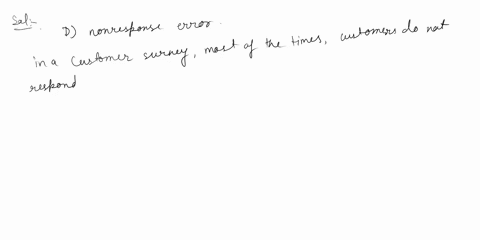 Sol:-
D) nonresponse error.
in a customer survey, most of the times, customers do not
respond